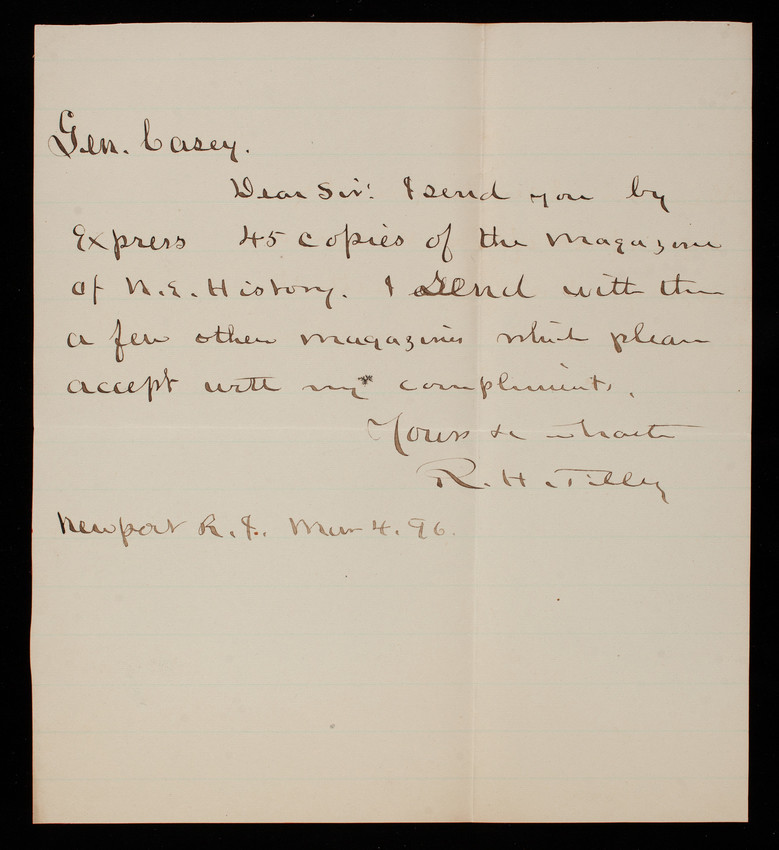 Gen. Casey.
Dear Sir: I send you by
Express 45 copies of the Magazine
of N.E. History. I send with them
a few other magazines which please
accept with my compliments.
Yours &c
R. H. Tilley
Newport R.I. Mar 4. 96.